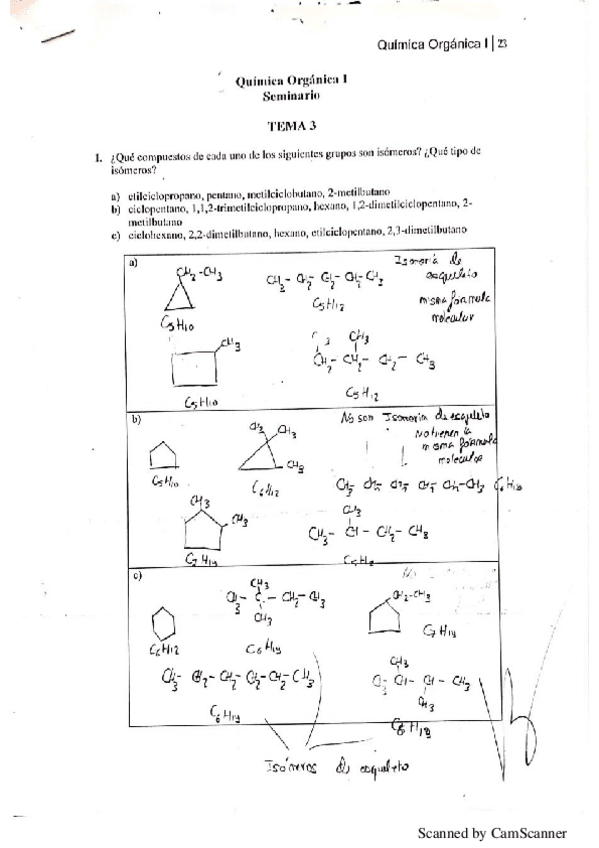 Química Orgánica I | 23
Química Orgánica I
Seminario
TEMA 3
1. ¿Qué compuestos de cada uno de los siguientes grupos son isómeros? ¿Qué tipo de
isómeros?
a) etilciclopropano, pentano, metilciclobutano, 2-metilbutano
b) ciclopentano, 1,1,2-trimetilciclopropano, hexano, 1,2-dimetilciclopentano, 2-
metilbutano
c) ciclohexano, 2,2-dimetilbutano, hexano, etilciclopentano, 2,3-dimetilbutano
a)
CH2-CH3
C5H10
CH3- CH2- CH2- CH2- CH3
C5H12
Isomería de
esqueleto
misma fórmula
molecular
CH3
C5H10
CH3
CH2- CH2- CH3
C5H12
b)
C5H10
CH3
CH3
CH3
C6H12
No son Isomería de esqueleto
No tienen la
misma fórmula
molecular
CH3
CH3
C7H14
CH3
CH3- CH- CH2- CH3
c)
C6H12
CH3
CH3- C - CH2- CH3
CH3
C6H14
CH2-CH3
C7H14
CH3- CH2- CH2- CH2- CH2- CH3
C6H14
CH3
CH- CH- CH3
CH3
Isómeros de esqueleto
Scanned by CamScanner